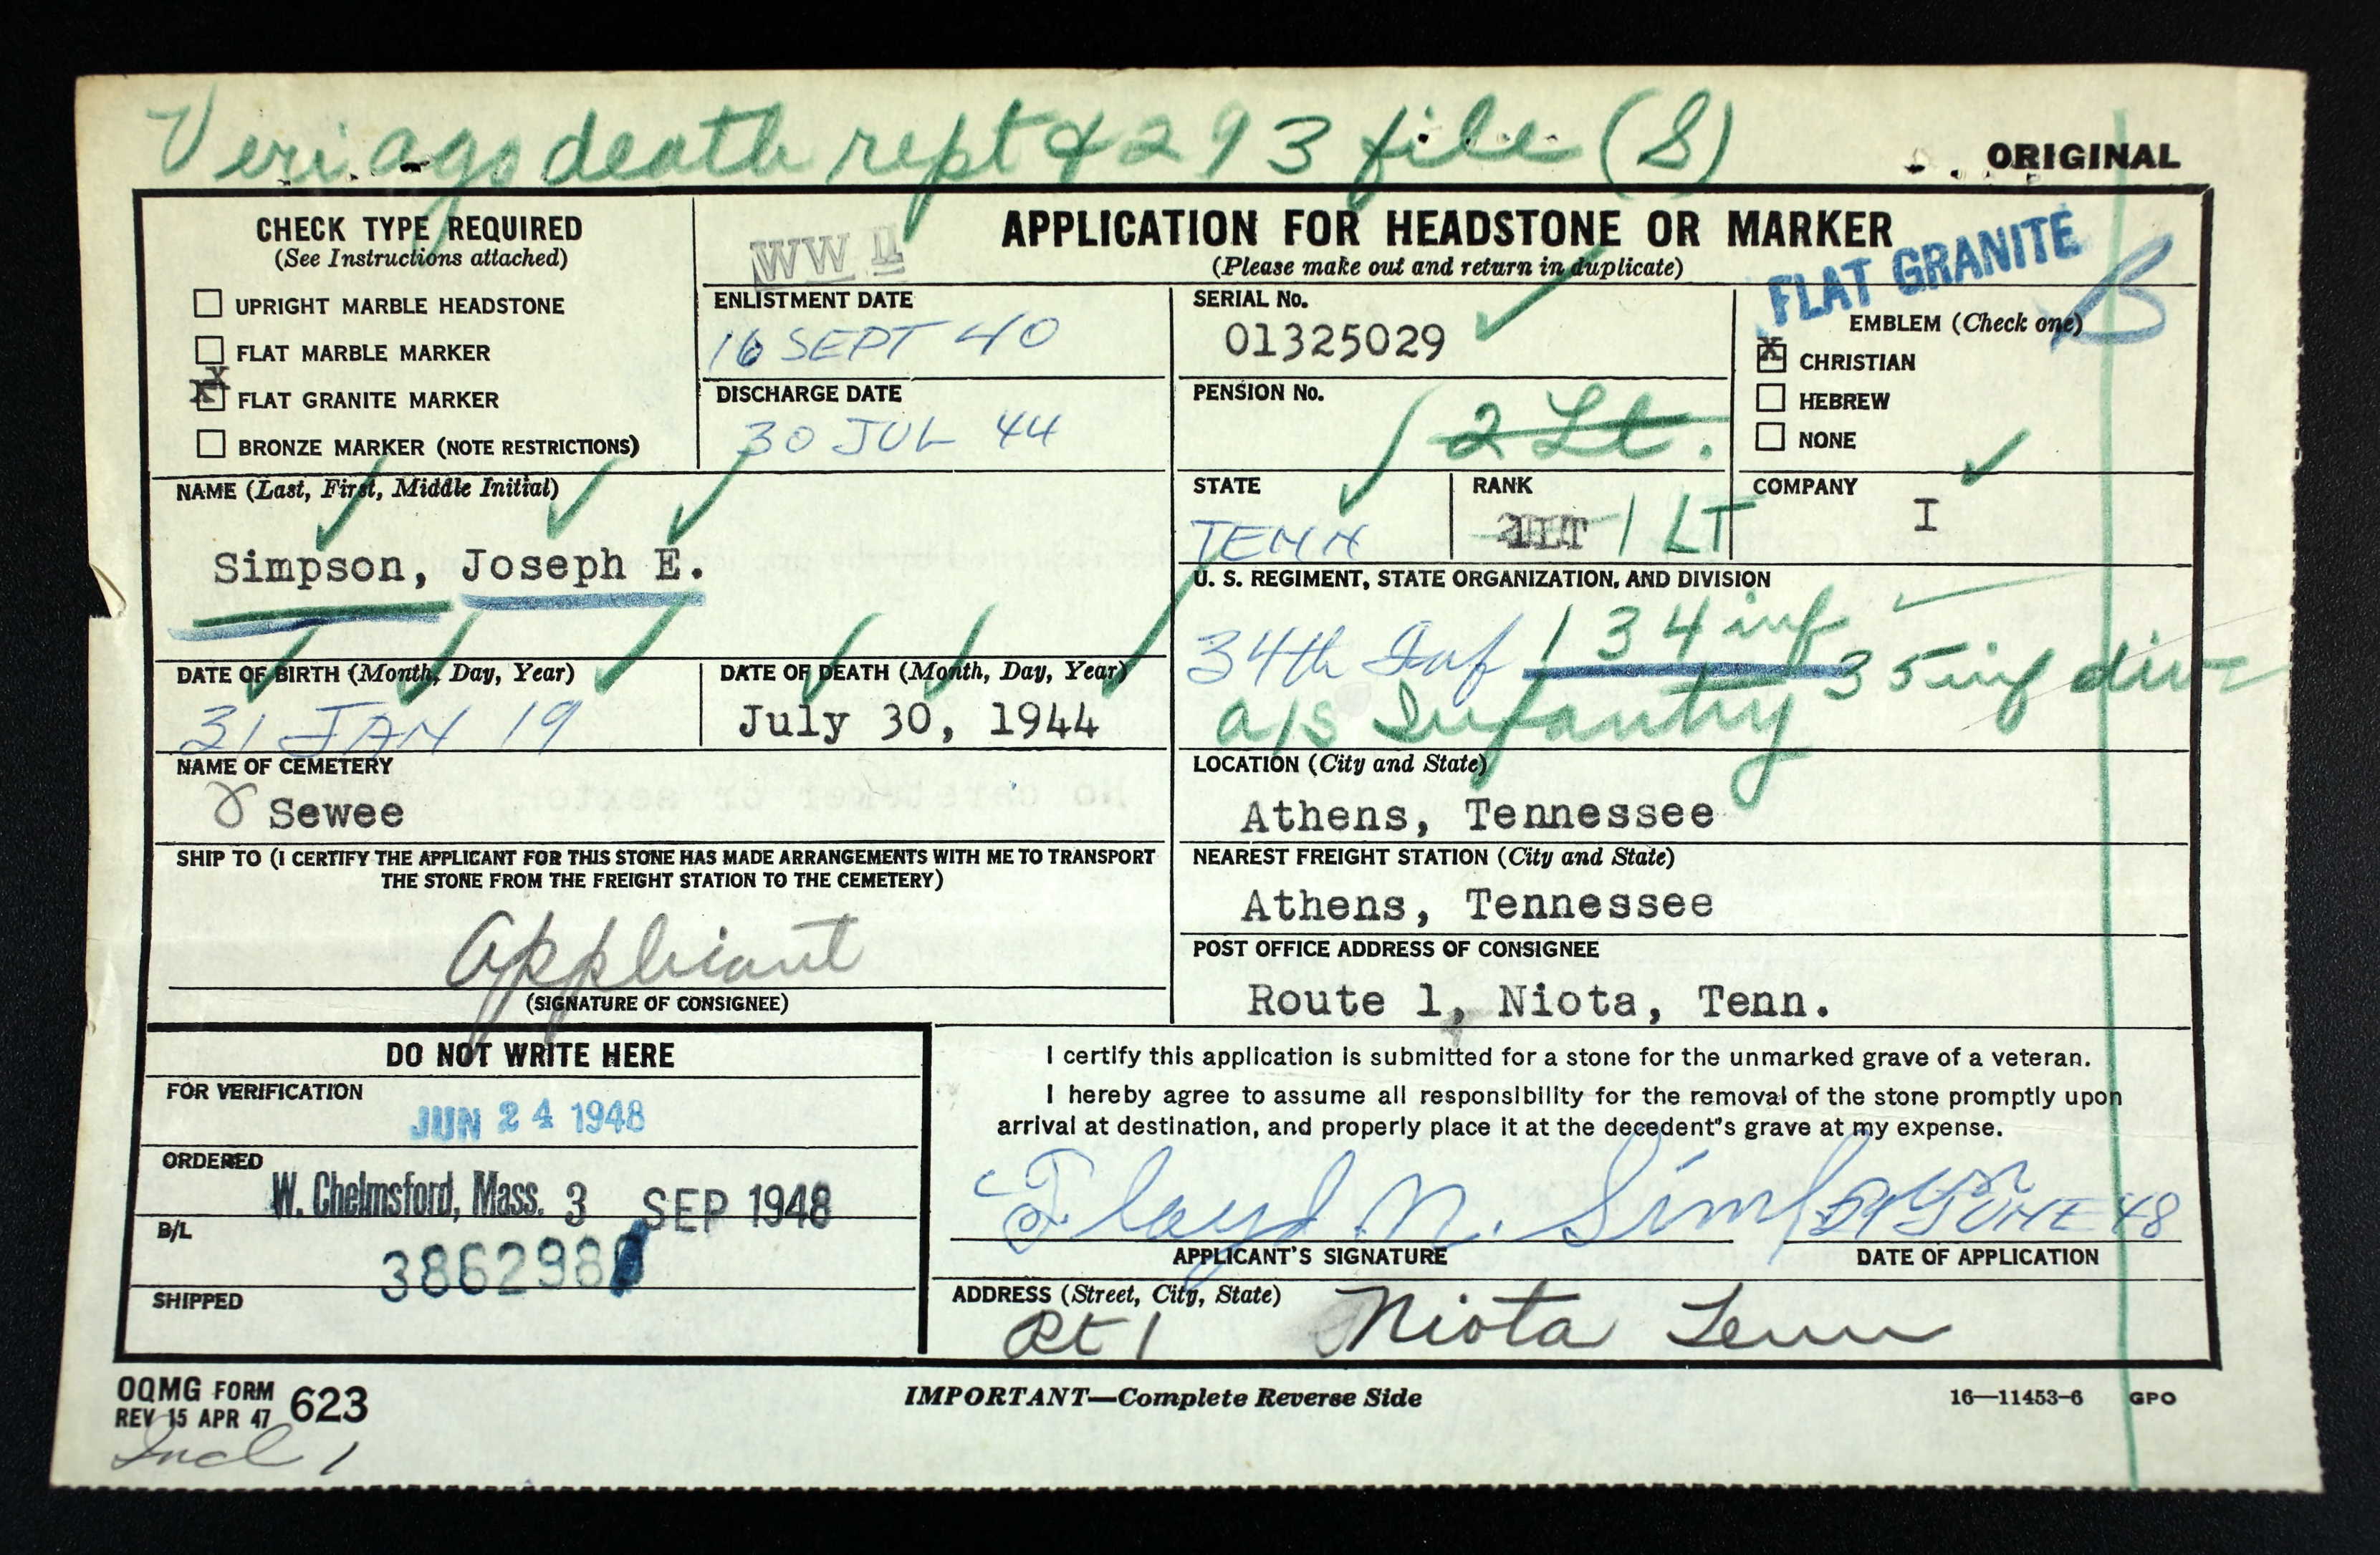 Veri ags death rept & 293 file (S)
ORIGINAL
CHECK TYPE REQUIRED
(See Instructions attached)
UPRIGHT MARBLE HEADSTONE
FLAT MARBLE MARKER
X FLAT GRANITE MARKER
BRONZE MARKER (NOTE RESTRICTIONS)
WW II
ENLISTMENT DATE
16 SEPT 40
DISCHARGE DATE
30 JUL 44
APPLICATION FOR HEADSTONE OR MARKER
(Please make out and return in duplicate)
FLAT GRANITE
SERIAL No.
01325029
PENSION No.
2 Lt.
EMBLEM (Check one)
X CHRISTIAN
HEBREW
NONE
NAME (Last, First, Middle Initial)
Simpson, Joseph E.
STATE
TENN
RANK
1 LT
COMPANY
I
U. S. REGIMENT, STATE ORGANIZATION, AND DIVISION
34th Inf 134 inf 35 inf div
a/s Infantry
DATE OF BIRTH (Month, Day, Year)
31 JAN 19
DATE OF DEATH (Month, Day, Year)
July 30, 1944
NAME OF CEMETERY
Sewee
LOCATION (City and State)
Athens, Tennessee
SHIP TO (I CERTIFY THE APPLICANT FOR THIS STONE HAS MADE ARRANGEMENTS WITH ME TO TRANSPORT
THE STONE FROM THE FREIGHT STATION TO THE CEMETERY)
Applicant
(SIGNATURE OF CONSIGNEE)
NEAREST FREIGHT STATION (City and State)
Athens, Tennessee
POST OFFICE ADDRESS OF CONSIGNEE
Route 1, Niota, Tenn.
DO NOT WRITE HERE
FOR VERIFICATION
JUN 24 1948
ORDERED
W. Chelmsford, Mass. 3 SEP 1948
B/L
SHIPPED
I certify this application is submitted for a stone for the unmarked grave of a veteran.
I hereby agree to assume all responsibility for the removal of the stone promptly upon
arrival at destination, and properly place it at the decedent"s grave at my expense.
Floyd N. Simpson
APPLICANT'S SIGNATURE
JUNE 48
DATE OF APPLICATION
ADDRESS (Street, City, State)
Rt 1 Niota Tenn
OQMG FORM 623
REV 15 APR 47
IMPORTANT—Complete Reverse Side
16—11453-6 GPO
Incl 1